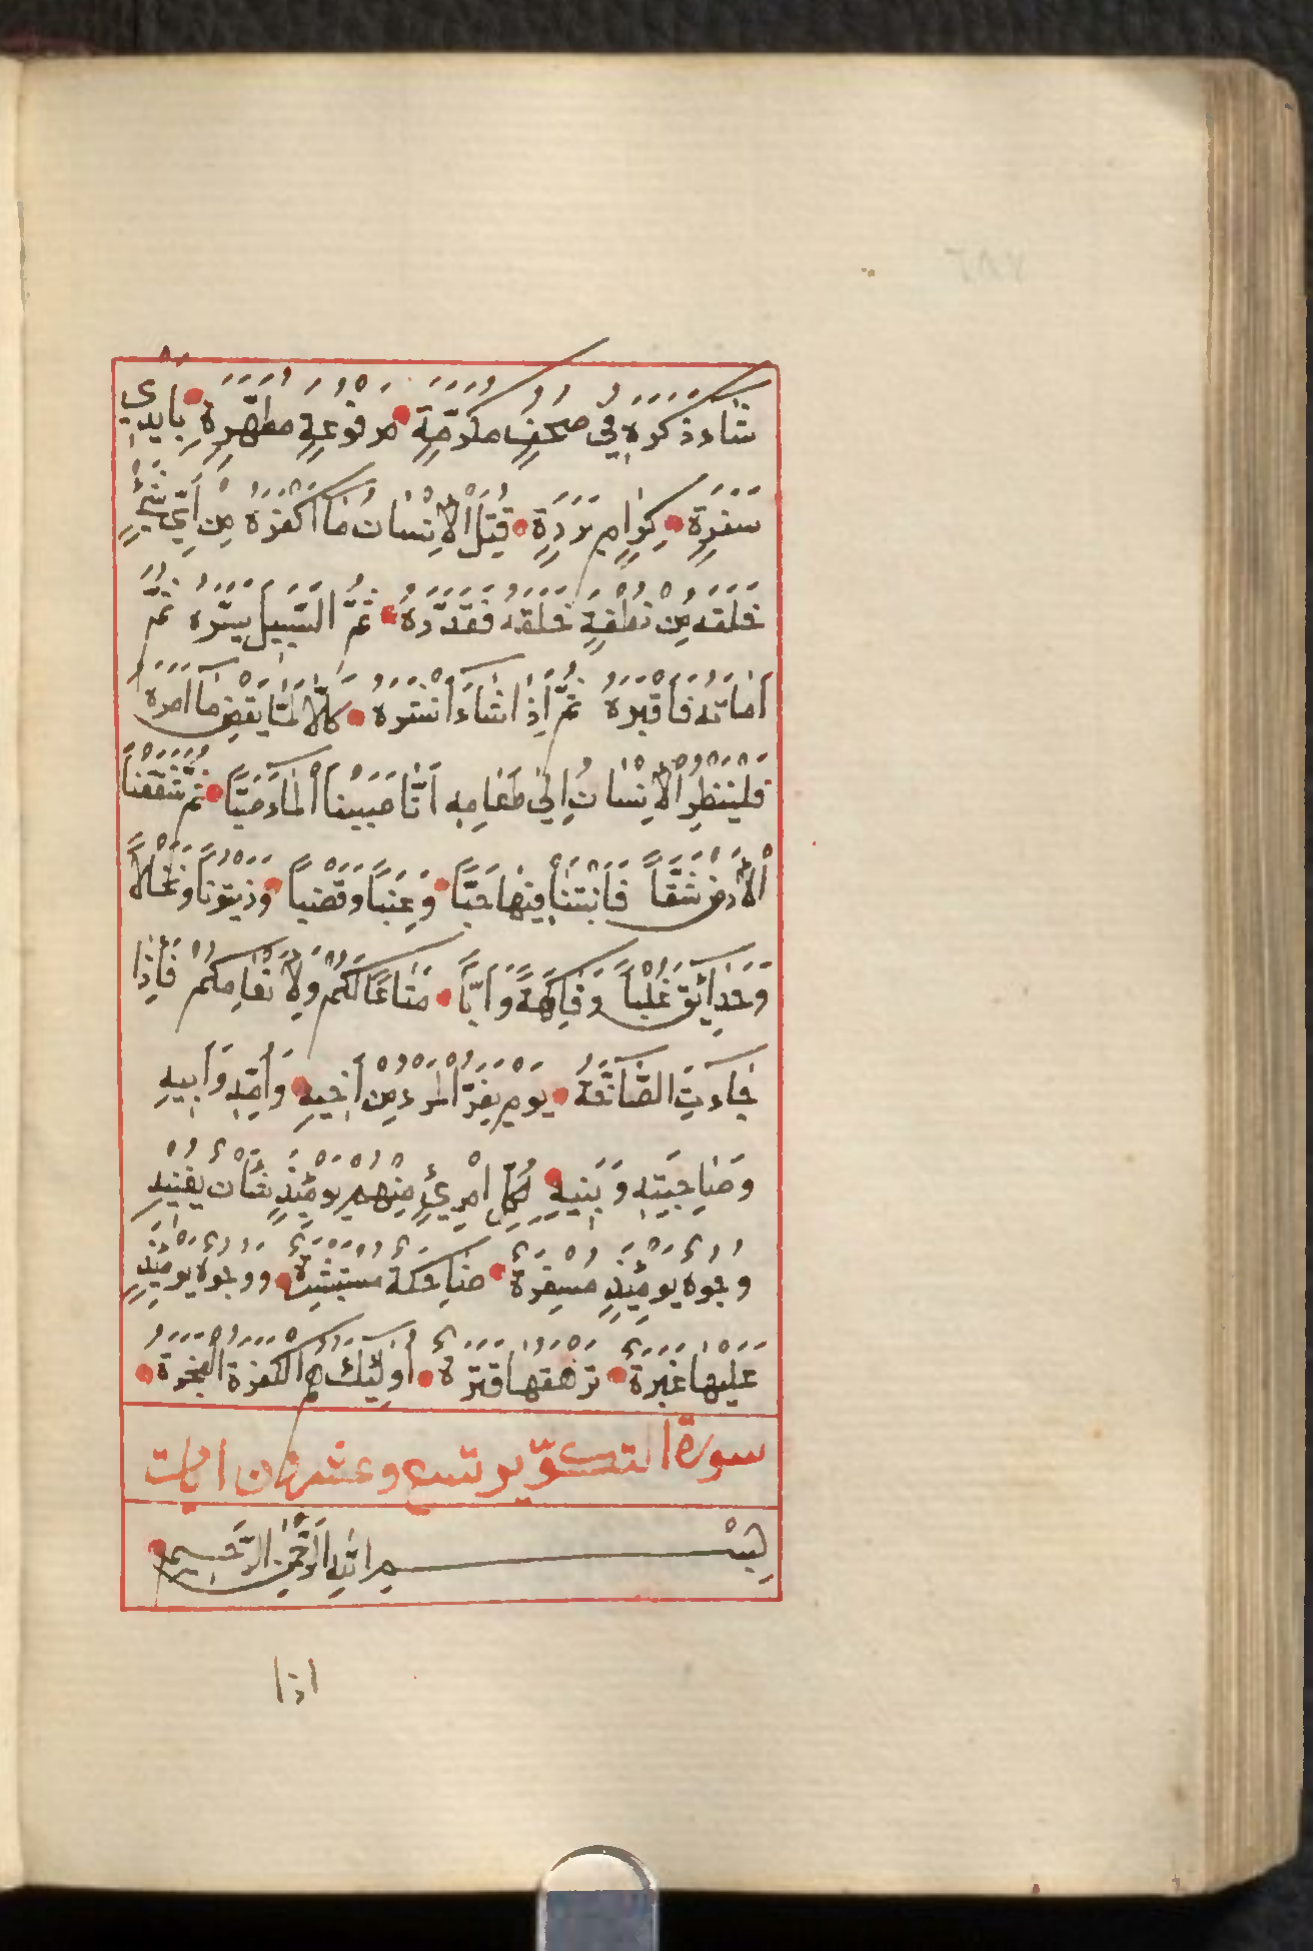 شَاءَ ذَكَرَهُ فِي صُحُفٍ مُكَرَّمَةٍ مَرْفُوعَةٍ مُطَهَّرَةٍ بِأَيْدِي
سَفَرَةٍ كِرَامٍ بَرَرَةٍ قُتِلَ الْإِنْسَانُ مَا أَكْفَرَهُ مِنْ أَيِّ شَيْءٍ
خَلَقَهُ مِنْ نُطْفَةٍ خَلَقَهُ فَقَدَّرَهُ ثُمَّ السَّبِيلَ يَسَّرَهُ ثُمَّ
أَمَاتَهُ فَأَقْبَرَهُ ثُمَّ إِذَا شَاءَ أَنْشَرَهُ كَلَّا لَمَّا يَقْضِ مَا أَمَرَهُ
فَلْيَنْظُرِ الْإِنْسَانُ إِلَى طَعَامِهِ أَنَّا صَبَبْنَا الْمَاءَ صَبًّا ثُمَّ شَقَقْنَا
الْأَرْضَ شَقًّا فَأَنْبَتْنَا فِيهَا حَبًّا وَعِنَبًا وَقَضْبًا وَزَيْتُونًا وَنَخْلًا
وَحَدَائِقَ غُلْبًا وَفَاكِهَةً وَأَبًّا مَتَاعًا لَكُمْ وَلِأَنْعَامِكُمْ فَإِذَا
جَاءَتِ الصَّاخَّةُ يَوْمَ يَفِرُّ الْمَرْءُ مِنْ أَخِيهِ وَأُمِّهِ وَأَبِيهِ
وَصَاحِبَتِهِ وَبَنِيهِ لِكُلِّ امْرِئٍ مِنْهُمْ يَوْمَئِذٍ شَأْنٌ يُغْنِيهِ
وُجُوهٌ يَوْمَئِذٍ مُسْفِرَةٌ ضَاحِكَةٌ مُسْتَبْشِرَةٌ وَوُجُوهٌ يَوْمَئِذٍ
عَلَيْهَا غَبَرَةٌ تَرْهَقُهَا قَتَرَةٌ أُولَئِكَ هُمُ الْكَفَرَةُ الْفَجَرَةُ
سورة التكوير تسع وعشرون ايات
بِسْمِ اللَّهِ الرَّحْمَنِ الرَّحِيمِ
اذا